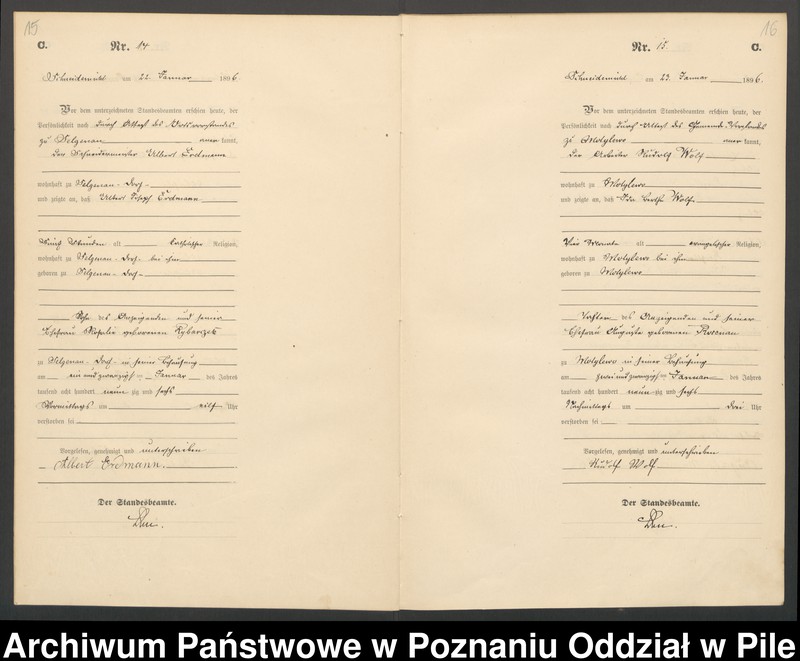 15
C.
Nr. 14
Schneidemühl am 22. Januar 1896
Vor dem unterzeichneten Standesbeamten erschien heute, der
Persönlichkeit nach durch Attest des Gutsvorstandes
zu Selgenau anerkannt,
der Schneidemeister Albert Erdmann
wohnhaft zu Selgenau-Dorf
und zeigte an, daß Albert Joseph Erdmann
Stunden alt katholischer Religion,
wohnhaft zu Selgenau-Dorf bei ihm
geboren zu Selgenau-Dorf
Sohn des Anzeigenden und seiner
Ehefrau Rosalie geborenen
zu Selgenau-Dorf in seiner Behausung
am ein und zwanzigsten Januar des Jahres
tausend acht hundert neun zig und sechs
Vormittags um elf Uhr
verstorben sei
Vorgelesen, genehmigt und unterschrieben
Albert Erdmann.
Der Standesbeamte.
16
Nr. 15 C.
Schneidemühl am 23. Januar 1896.
Vor dem unterzeichneten Standesbeamten erschien heute, der
Persönlichkeit nach durch Attest des Gemeinde-Vorstandes
zu Motylewo anerkannt,
der Arbeiter Rudolf Wolf
wohnhaft zu Motylewo
und zeigte an, daß Ida Bertha Wolf
Monate alt evangelischer Religion,
wohnhaft zu Motylewo bei ihm
geboren zu Motylewo
Tochter des Anzeigenden und seiner
Ehefrau Auguste geborenen Rosenau
zu Motylewo in seiner Behausung
am zwei und zwanzigsten Januar des Jahres
tausend acht hundert neun zig und sechs
Nachmittags um drei Uhr
verstorben sei
Vorgelesen, genehmigt und unterschrieben
Rudolf Wolf
Der Standesbeamte.
Archiwum Państwowe w Poznaniu Oddział w Pile